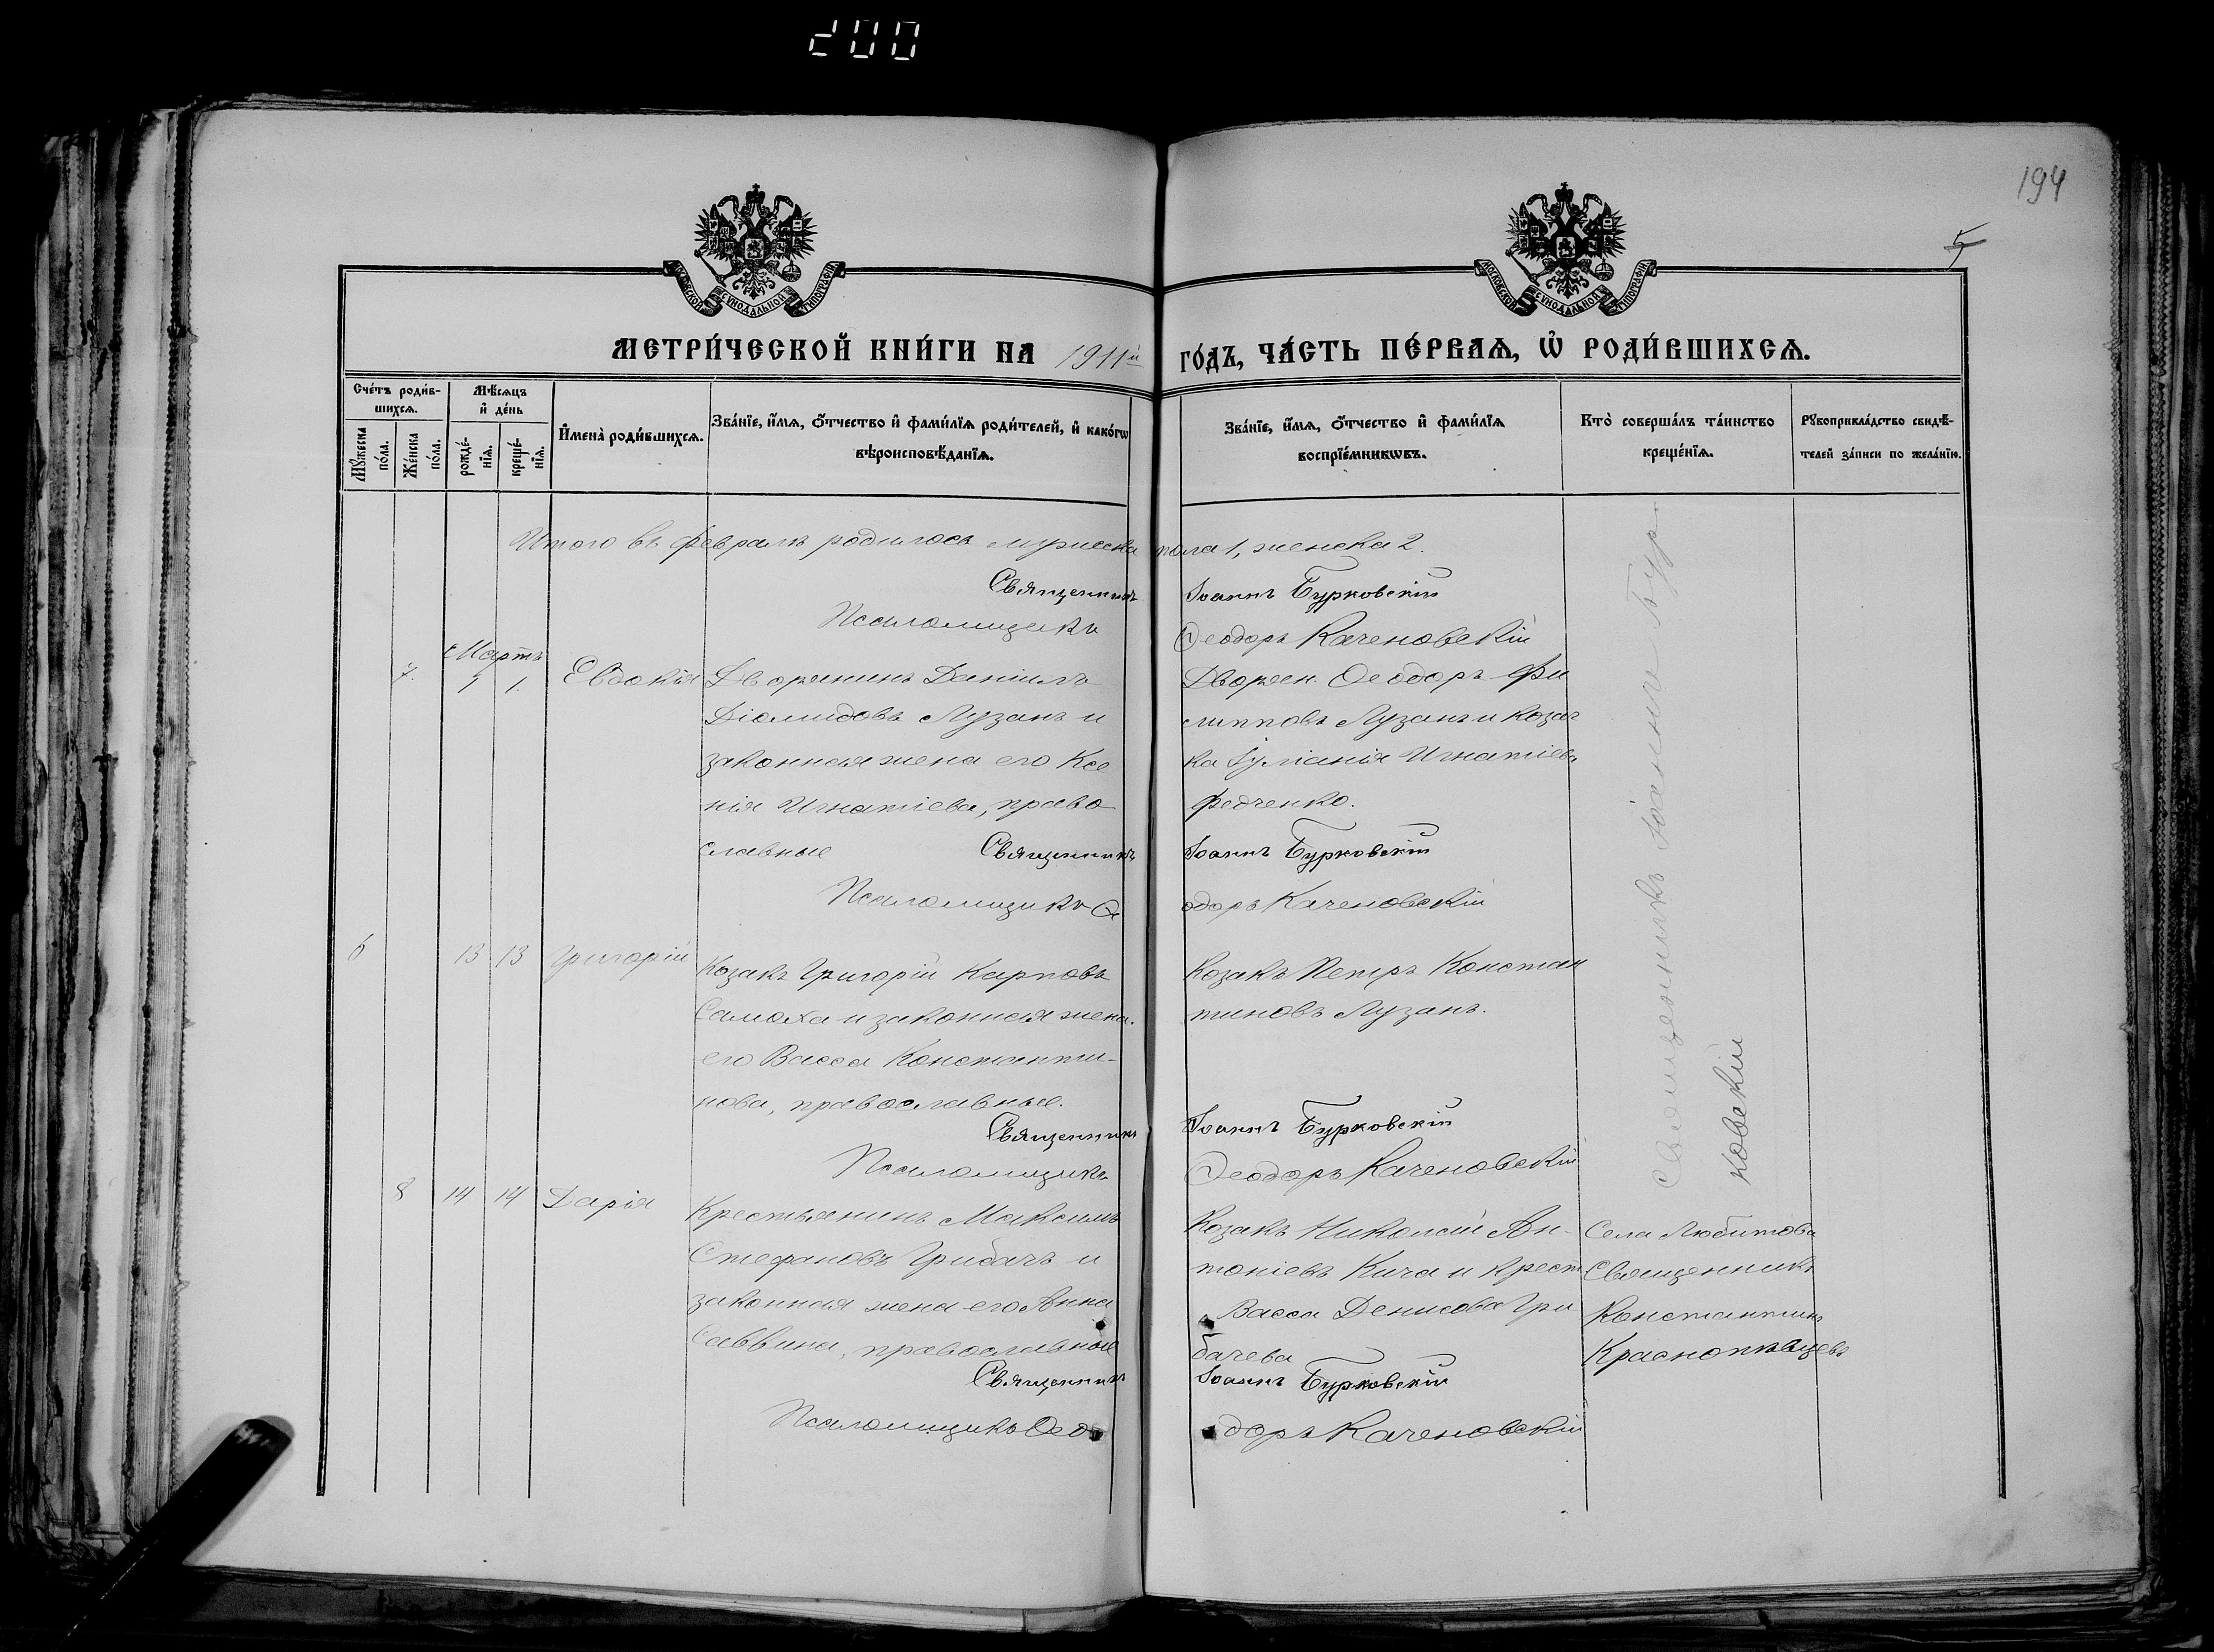 200
194
5
МОСКОВСКОЙ СѴНОДАЛЬНОЙ ТИПОГРАФІИ
МОСКОВСКОЙ СѴНОДАЛЬНОЙ ТИПОГРАФІИ
МЕТРИ́ЧЕСКОЙ КНИ́ГИ НА 1911й ГО́ДЪ, ЧА́СТЬ ПЕ́РВАѦ, Ѡ҆ РОДИ́ВШИХСѦ.
Сче́тъ роди́в-
шихсѧ.
Мѣ́сѧцъ
и҆ де́нь
Мꙋ́жеска по́ла.
Же́нска по́ла.
рожде́-
нїѧ.
креще́-
нїѧ.
И҆мена̀ роди́вшихсѧ.
Зва́нїе, и҆́мѧ, ѻ҆́тчество и҆ фами́лїѧ роди́телей, и҆ како́гѡ
вѣроисповѣ́данїѧ.
Зва́нїе, и҆́мѧ, ѻ҆́тчество и҆ фами́лїѧ
воспрїе́мникѡвъ.
Кто̀ соверша́лъ та́инство
креще́нїѧ.
Рꙋкоприкла́дство свидѣ́-
телей за́писи по жела́нїю.
Итого въ февралѣ родилось мужеска пола 1, женска 2.
Священникъ Іоаннъ Бурковскій
Псаломщикъ Ѳеодоръ Каченовскій
Мартъ
7. 1 1. Евдокія
Дворянинъ Даніилъ
Діомидовъ Лузанъ и
законная жена его Ксе
нія Игнатіева, право
славные
Дворян. Ѳеодоръ Фи
липповъ Лузанъ и козач
ка Іуліанія Игнатіева
Федченко.
Священникъ Іоаннъ Бурковскій
Псаломщикъ Ѳеодоръ Каченовскій
6 13 13 Григорій
Козакъ Григорій Карповъ
Самоха и законная жена
его Васса Константи-
нова, православные.
Козакъ Петръ Констан
тиновъ Лузанъ.
Священникъ Іоаннъ Бурковскій
Псаломщикъ Ѳеодоръ Каченовскій
Священникъ Іоаннъ Бур-
ковскій
8 14 14 Дарія
Крестьянинъ Максимъ
Стефановъ Грибачъ и
законная жена его Анна
Саввина, православные
Козакъ Николай Ан-
тоніевъ Кича и крест
Васса Денисова Гри
бачева
Села Любитова
Священникъ
Константинъ
Краснопѣвцевъ
Священникъ Іоаннъ Бурковскій
Псаломщикъ Ѳеодоръ Каченовскій